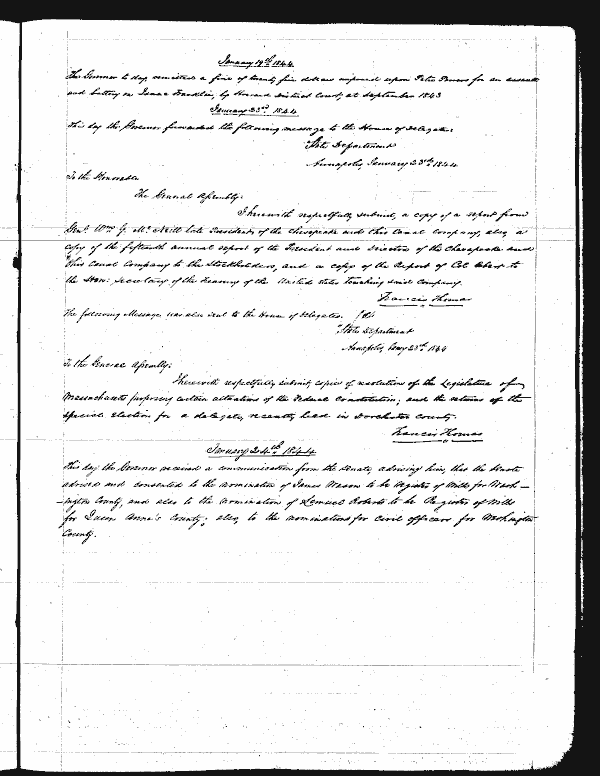 January 19th 1844
The Governor to day, remitted a fine of twenty five dollars imposed upon Peter Powers for an assault
and battery on Isaac Franklin, by Howard District Court, at September 1843
January 23rd 1844
This day the Governor forwarded the following message to the House of Delegates:
State Department
Annapolis, January 23rd 1844
To the Honorable
The General Assembly:
I herewith respectfully submit, a copy of a report from
Genl. Wm G. Mc Neill late President of the Chesapeake and Ohio Canal Company, also, a
copy of the fifteenth annual report of the President and Directors of the Chesapeake and
Ohio Canal Company to the Stockholders, and a copy of the Report of Col. Abert to
the Hon: Secretary of the Treasury of the United States touching said Company.
Francis Thomas
The following Message was also sent to the House of Delegates.
State Department
Annapolis, Jany 23rd 1844
To the General Assembly:
I herewith respectfully submit, copies of resolutions of the Legislature of
Massachusetts proposing certain alterations of the Federal Constitution; and the returns of the
special election for a delegate, recently held in Dorchester County.
Francis Thomas
January 24th 1844
This day the Governor received a communication from the Senate, advising him, that the Senate
advised and consented to the nomination of James Wason to be Register of Wills for Wash-
-ington County, and also to the nomination of Lemuel Roberts to be Register of Wills
for Queen Anne's County; also, to the nominations for civil officers for Washington
County.